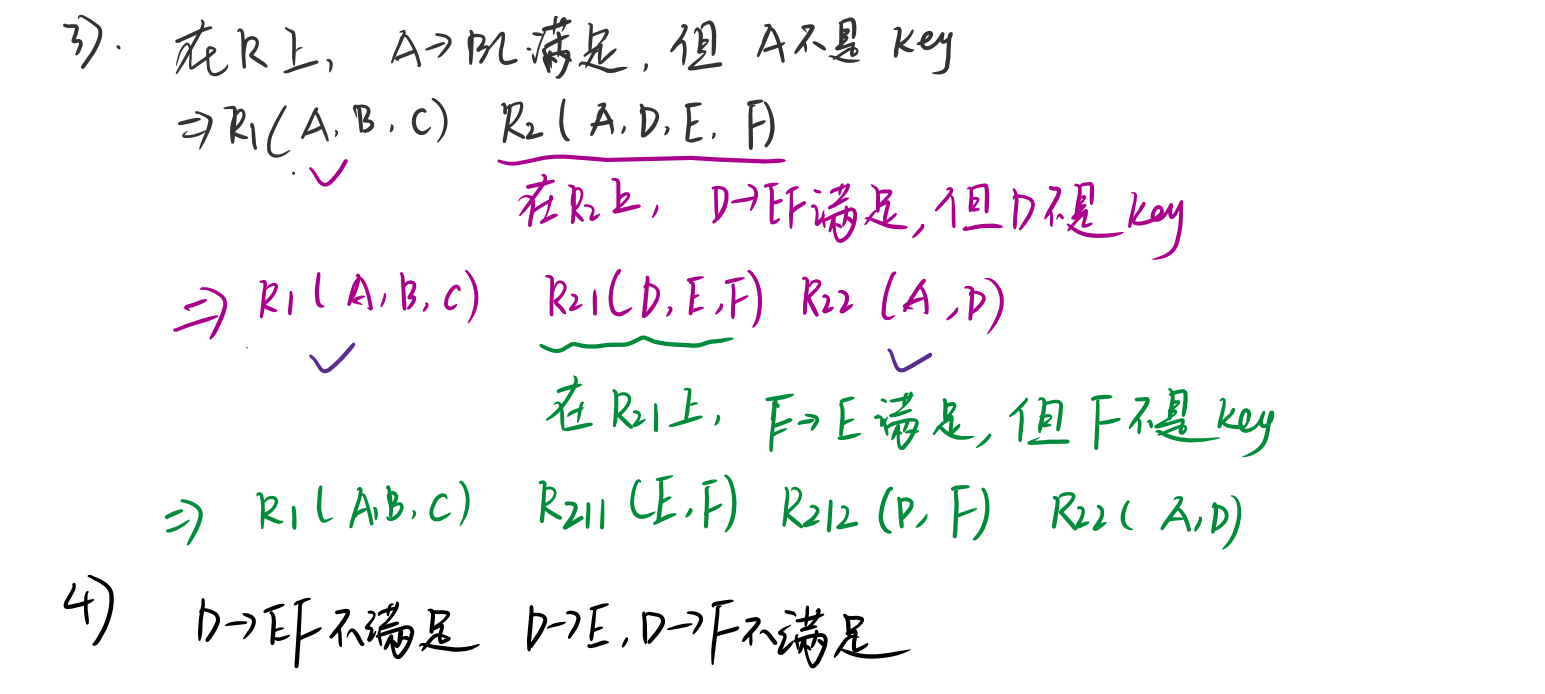 3). 在R上, A→BC满足, 但 A不是 key
⇒R1(A, B, C) R2(A, D, E, F)
在R2上, D→EF满足, 但D不是 key
⇒ R1(A, B, C) R21(D, E, F) R22(A, D)
在R21上, F→E满足, 但F不是 key
⇒ R1(A, B, C) R211(E, F) R212(D, F) R22(A, D)
4) D→EF不满足 D→E, D→F不满足